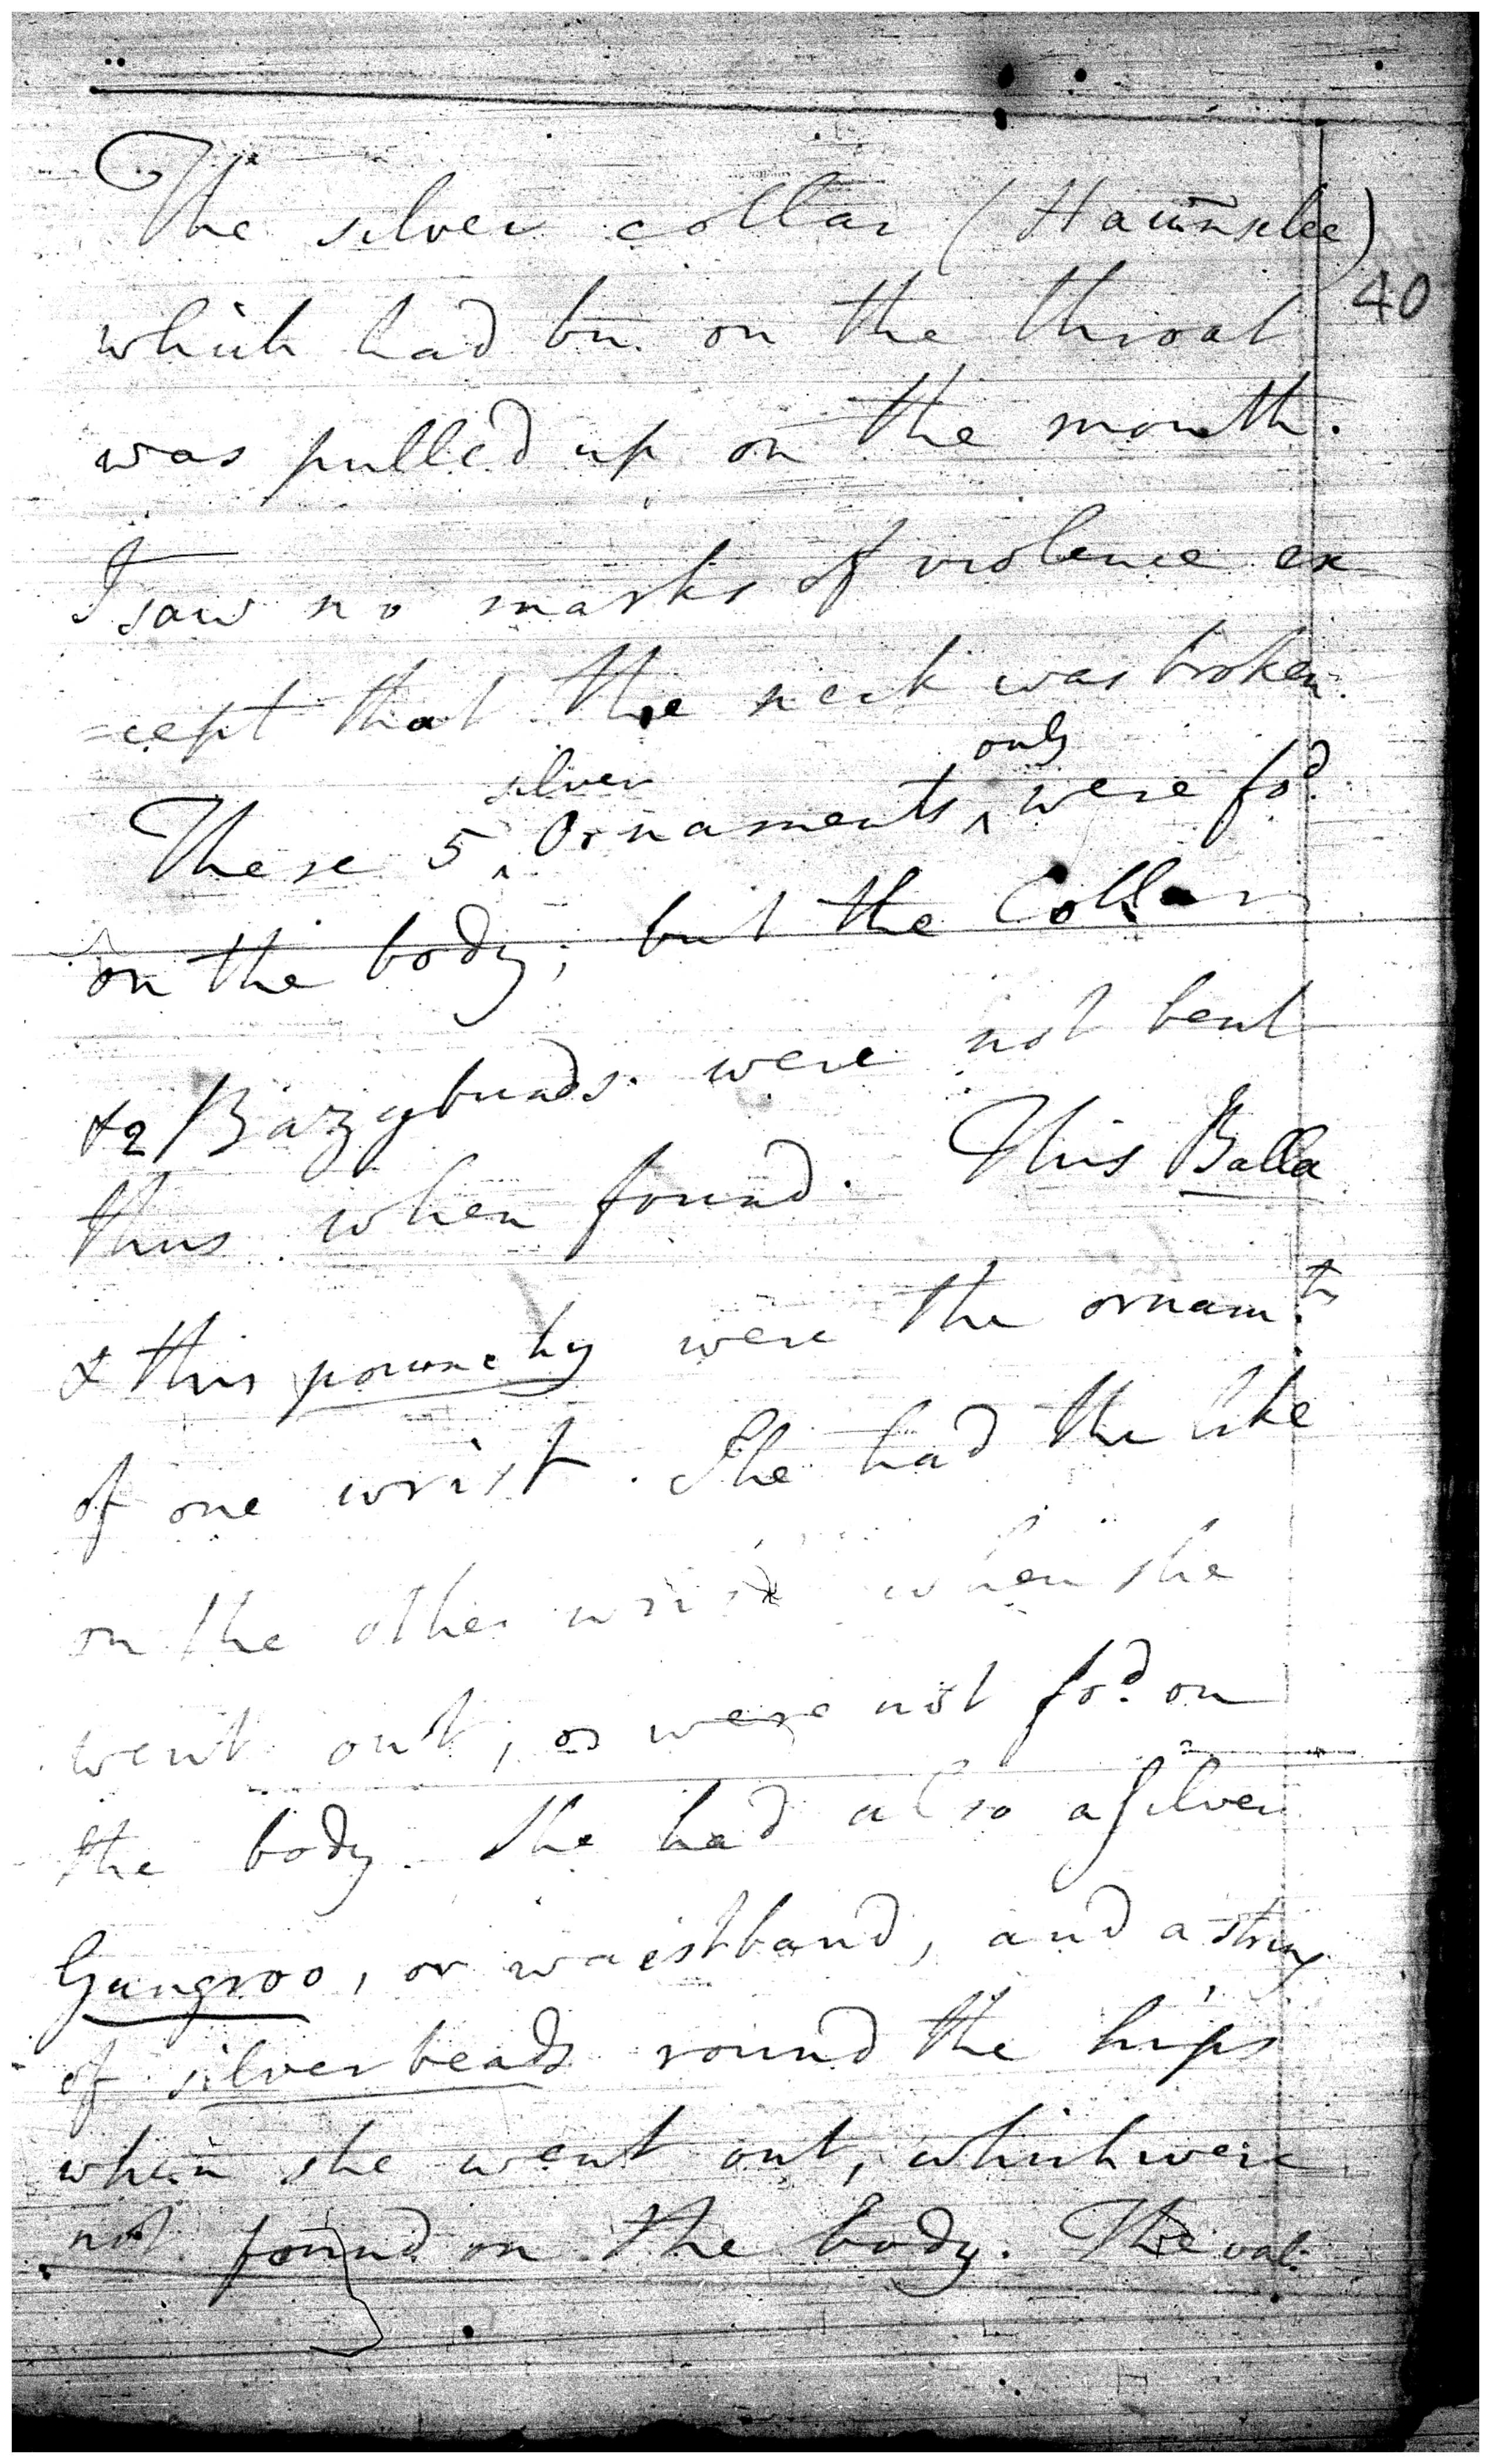 The silver collar (Haunslee)
40
which had bn. on the throat
was pulled up on the mouth.
I saw no marks of violence ex
=cept that the neck was broken.
These 5 silver Ornaments only were fod.
on the body; but the Collar
& 2 Bazybunds were not bent
thus when found. This Balla
& this pounchy were the ornamts.
of one wrist. She had the like
on the other wrist when she
went out, or were not fod. on
the body. She had also a silver
Gungroo, or waistband, and a string
of silver beads round the hips
when she went out, which were
not found on the body. The val